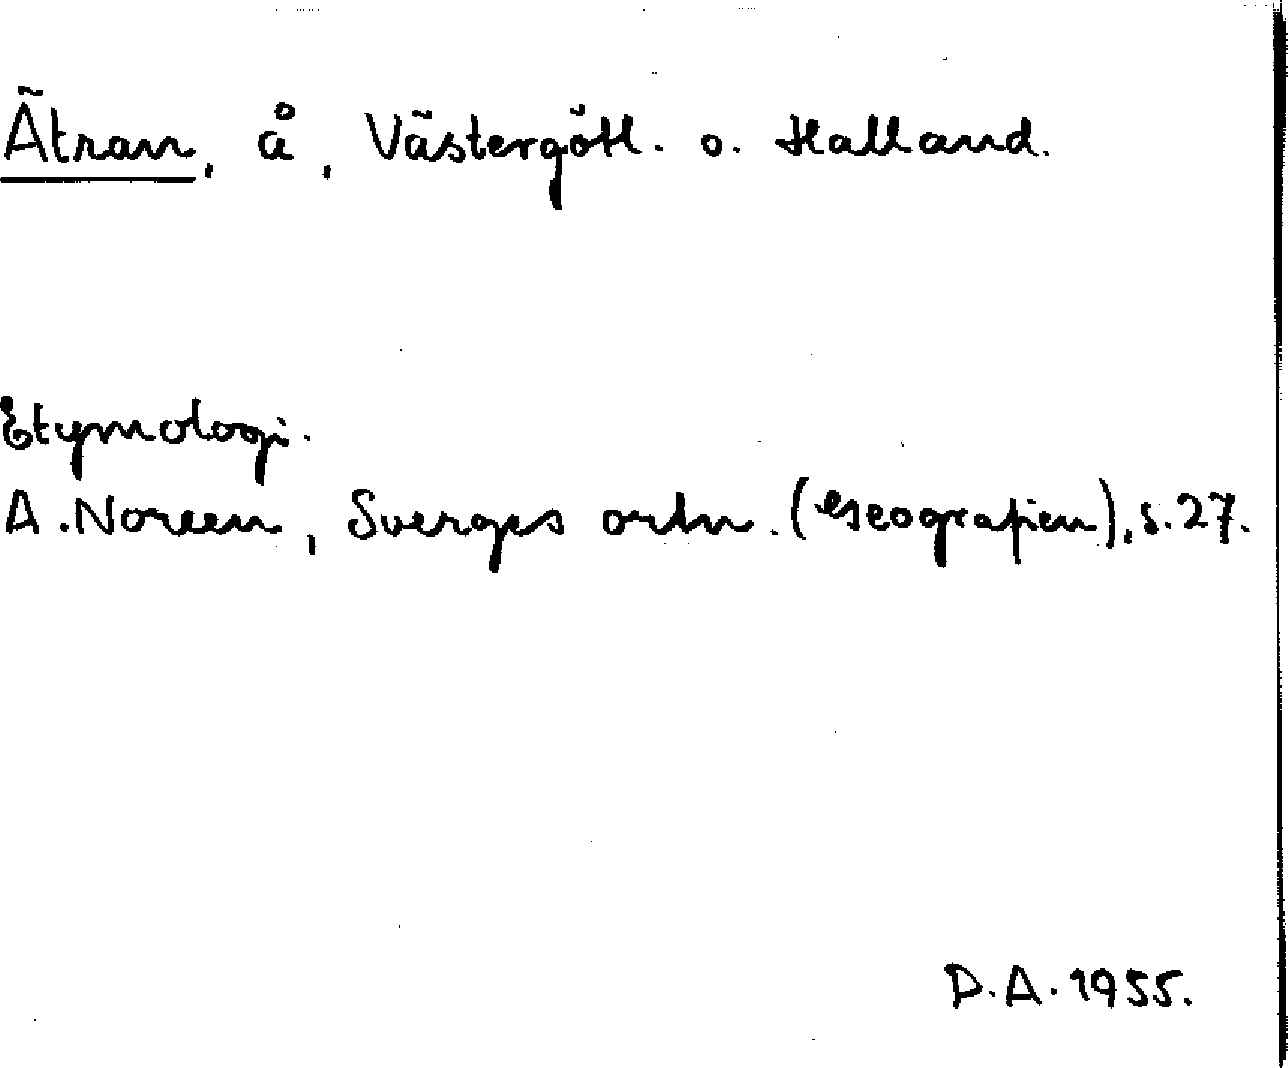 Ätran, å, Västergötl. o. Halland.
Etymologi.
A. Noreen, Sverges ortn. (Geografien), s. 27.
D.A. 1955.